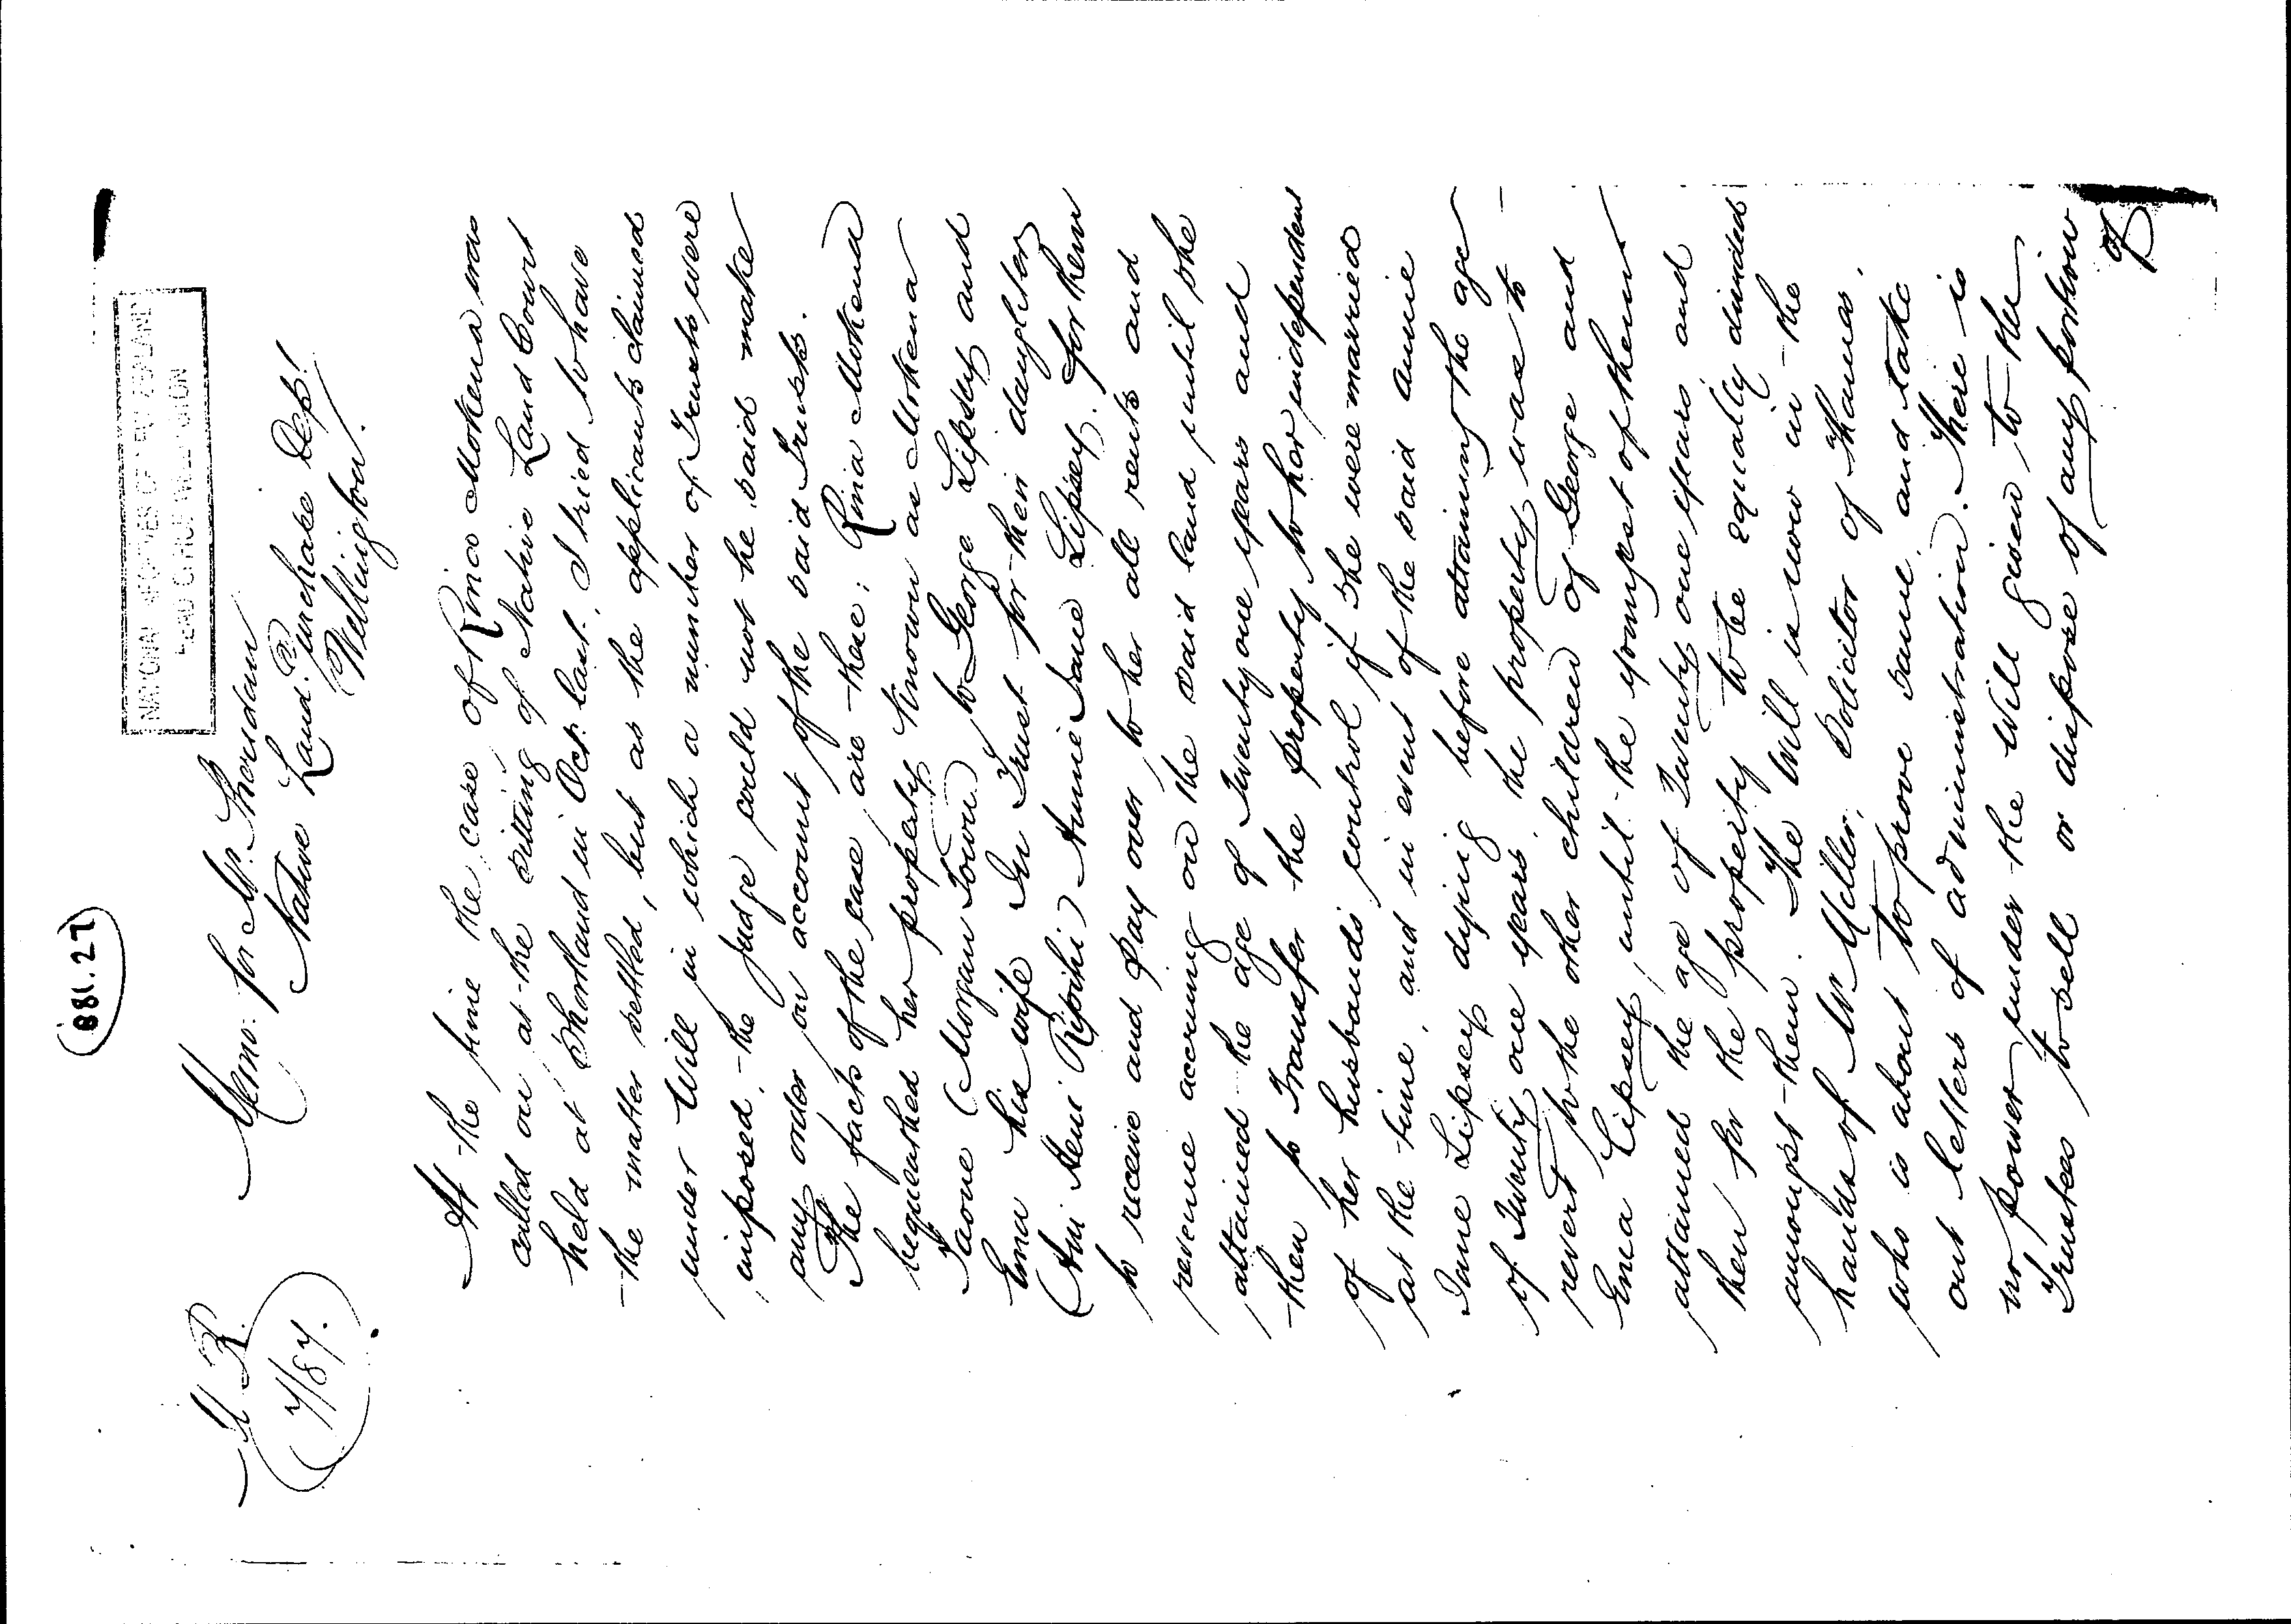 881.27
NATIONAL ARCHIVES OF NEW ZEALAND
HEAD OFFICE WELLINGTON
7/87.
Memo: for Mr. Sheridan
Native Land Purchase Dept.
Wellington.
At the time the case of Rina Mokena was
called on at the sitting of Native Land Court
held at Shortland in Oct: last. I tried to have
the matter settled, but as the applicants claimed
under Will in which a number of Trusts were
imposed, the Judge could not he said make
any order on account of the said Trusts.
The facts of the case are these; Rina Mokena
bequeathed her property known as Mokena
Taone (Morgan Town) to George Lipsey and
Ema his wife In Trust for their daughter
(Ani Heni Ripihi) Annie Jane Lipsey. for them
to receive and pay over to her all rents and
revenue accruing on the said land until she
attained the age of Twenty one years and
then to Transfer the property to her independent
of her husbands control if she were married
at the time, and in event of the said Annie
Jane Lipsey dying before attaining the age
of Twenty one years, the property was to
revert to the other children of George and
Ema Lipsey, until the youngest of them
attained the age of Twenty one years and
then for the property to be equally divided
amongst them. The Will is now in the
hands of Mr Miller, Solicitor of Thames,
who is about to prove same, and take
out letters of administration. There is
no power under the Will given to the
Trustees to sell or dispose of any portion
of